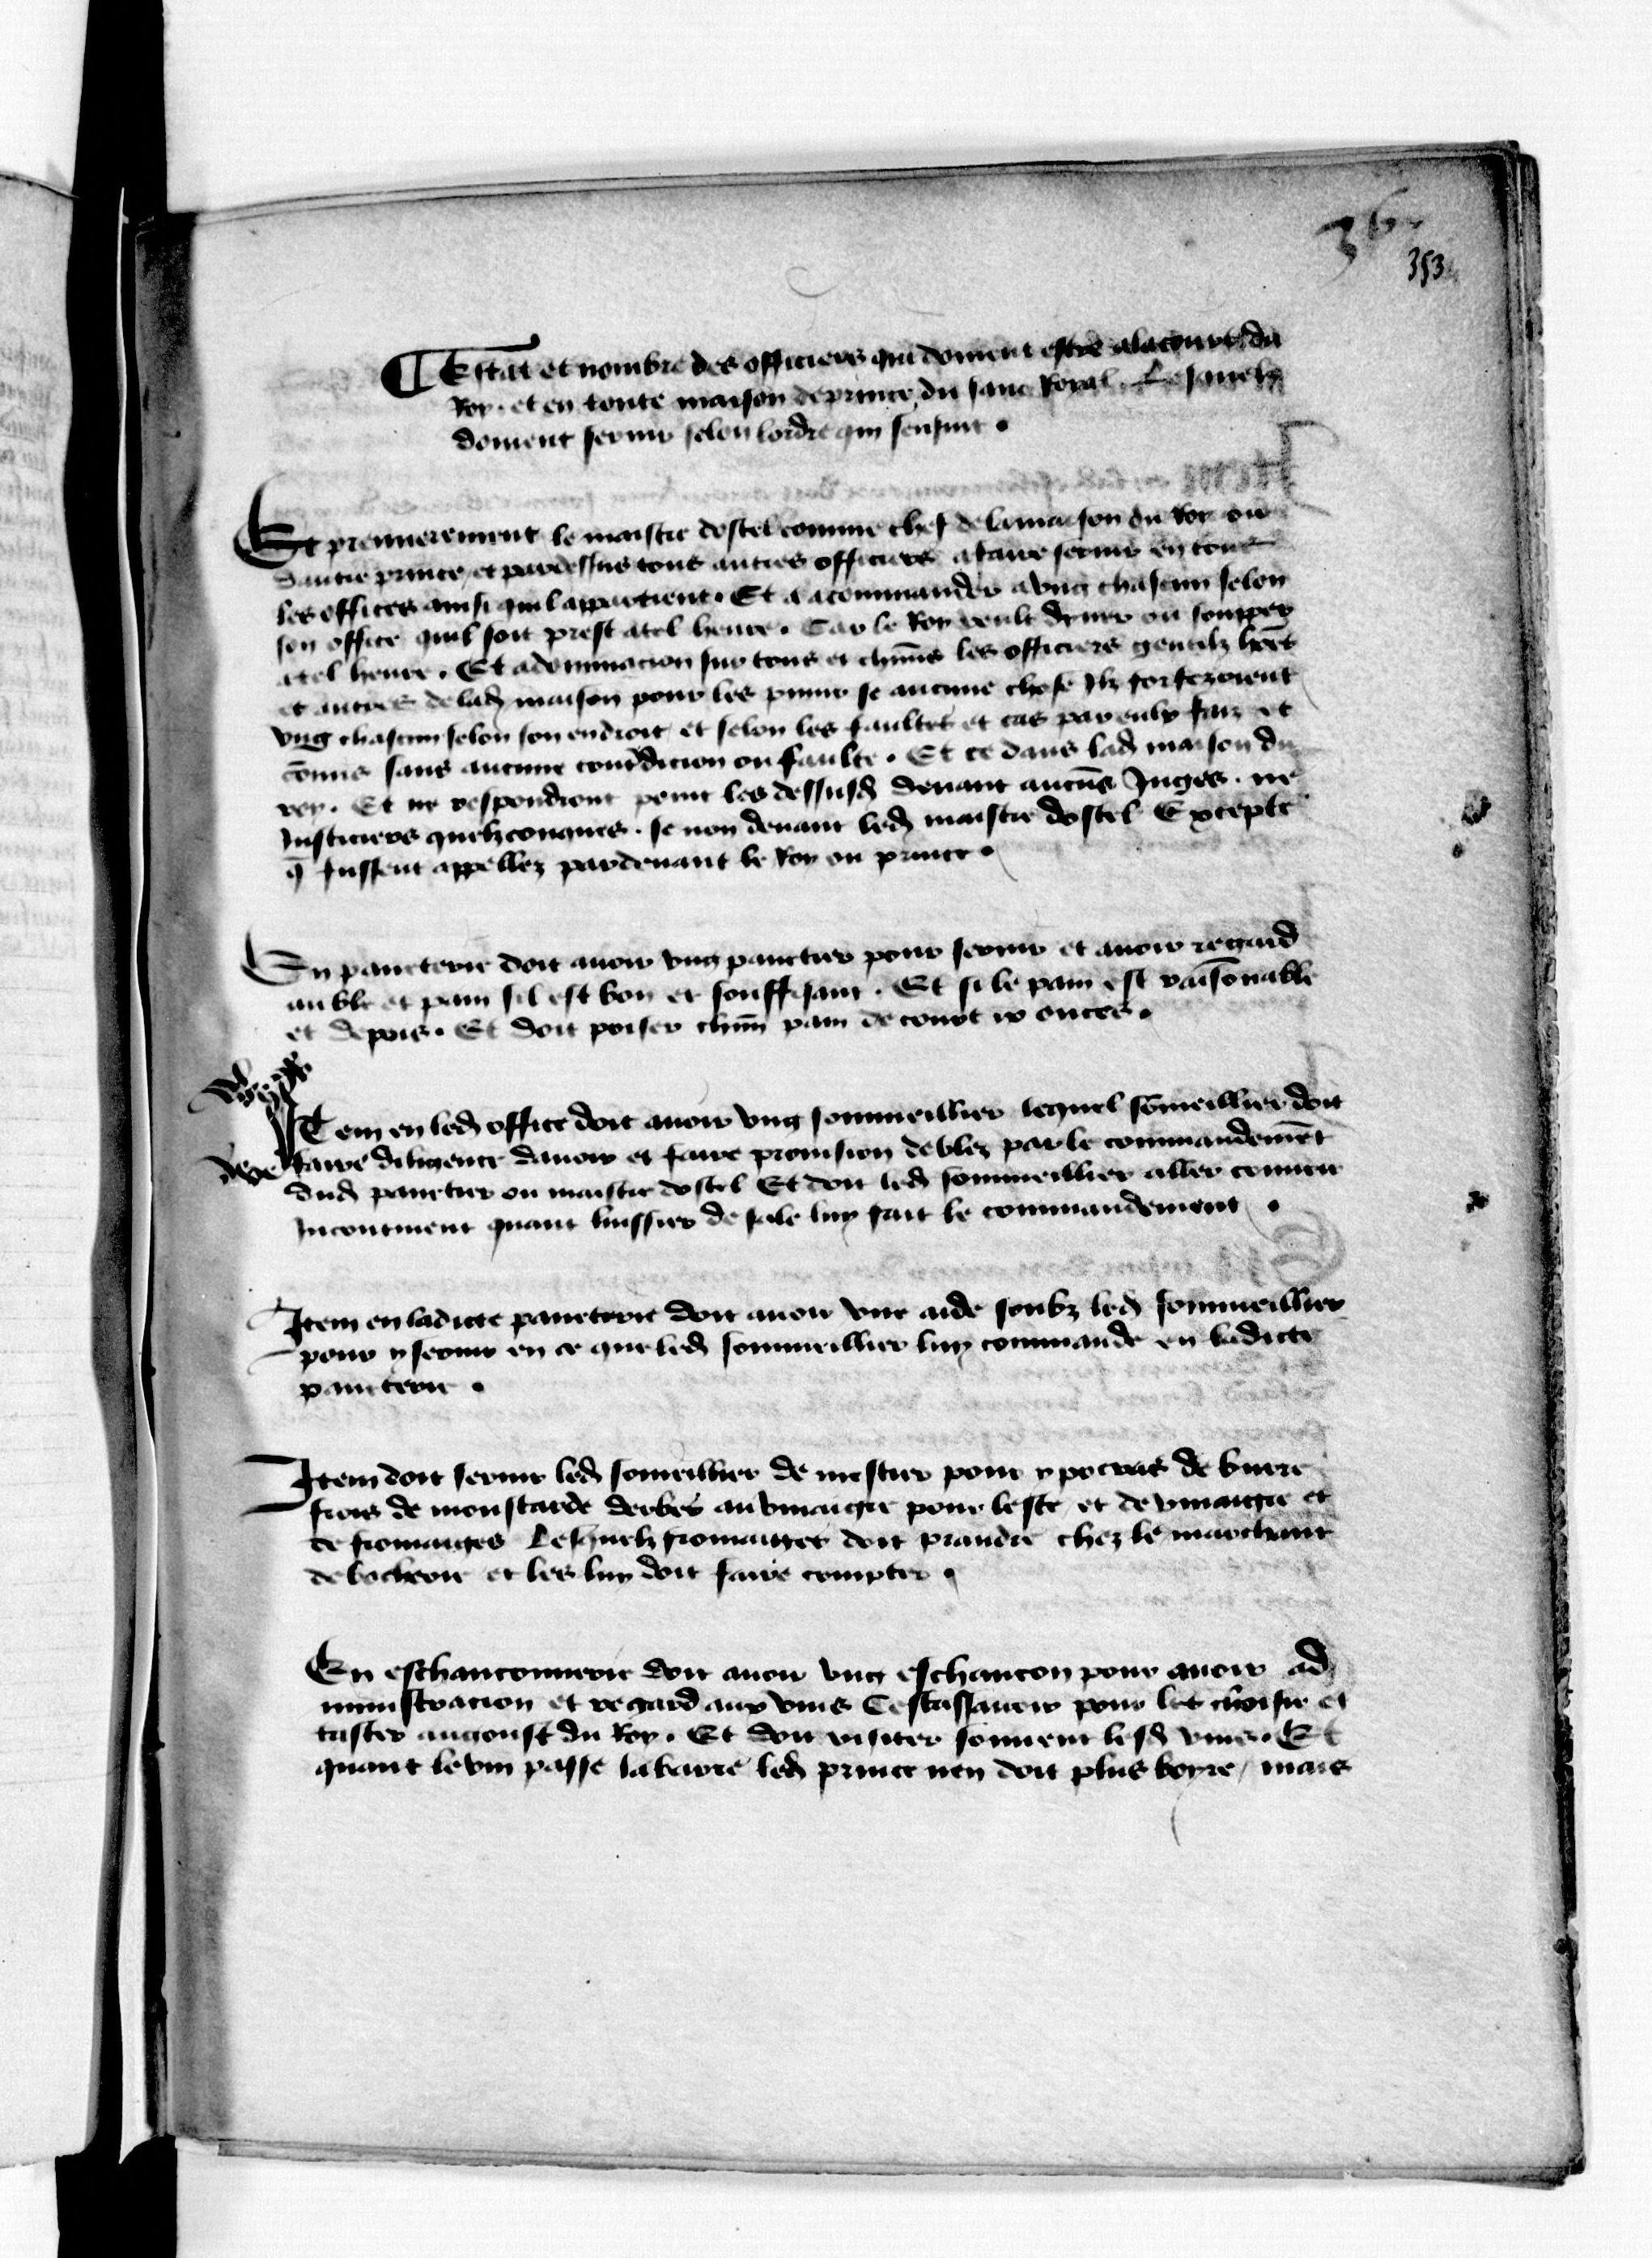 36
353
Estat et nombre des officiers qui doivent estre a la court du
Roy. et en toute maison de prince du sanc Royal. Lesquelz
doivent servir selon lordre qui sensuit.
Et premierement le maistre dostel comme chef de la maison du Roy ou
dautre prince et pardessus tous autres officiers a faire servir en tous
les offices ainsi quil appartient. Et a acommander a ung chascun selon
son office quil soit prest a tel heure. Car le Roy veult disner ou soupper
a tel heure. Et a dominacion sur tous et chūns les officiers gentilz hōēs
et autres de lad maison pour les pugnir se aucune chose Ilz forfezoient
ung chascun selon son endroit et selon les faultes et cas par eulx faiz et
cōmis sans aucune contradicion ou faulte. Et ce dans lad maison du
roy. Et ne respondront point les dessusd devant aucūs Juges. ne
Justiciers quelzconques. se non devant led maistre dostel Excepte
q̄ fussent appellez pardevant le Roy ou prince.
En paneterie doit avoir ung panetier pour servir et avoir regard
au ble et pain sil est bon et souffisant. Et si le pain est raisonnable
et de pois. Et doit poiser chūn pain de court ix onces.
Item en led office doit avoir ung sommeillier lequel sōmeillier doit
faire diligence davoir et faire provision de blez par le commandemēt
dud panetier ou maistre dostel Et doit led sommeillier aller couvrir
Incontinent quant luissier de sale luy fait le commandement.
Item en ladicte paneterie doit avoir une aide soubz led sommeillier
pour y servir en ce que led sommeillier luy commande en ladicte
paneterie.
Item doit servir led someillier de mestier pour ypocras de burre
frois de moustarde derbes au vinaigre pour leste et de vinaigre et
de fromaiges Lesquelz fromaiges doit prandre chez le marchant
de bocherie et les luy doit faire compter.
En eschanconnerie doit avoir ung eschancon pour avoir ad
ministracion et regard aux vins Cestassavoir pour les choisir et
taster au goust du Roy. Et doit visiter souvent lesd vins. Et
quant le vin passe la barre led prince nen doit plus boyre / mais